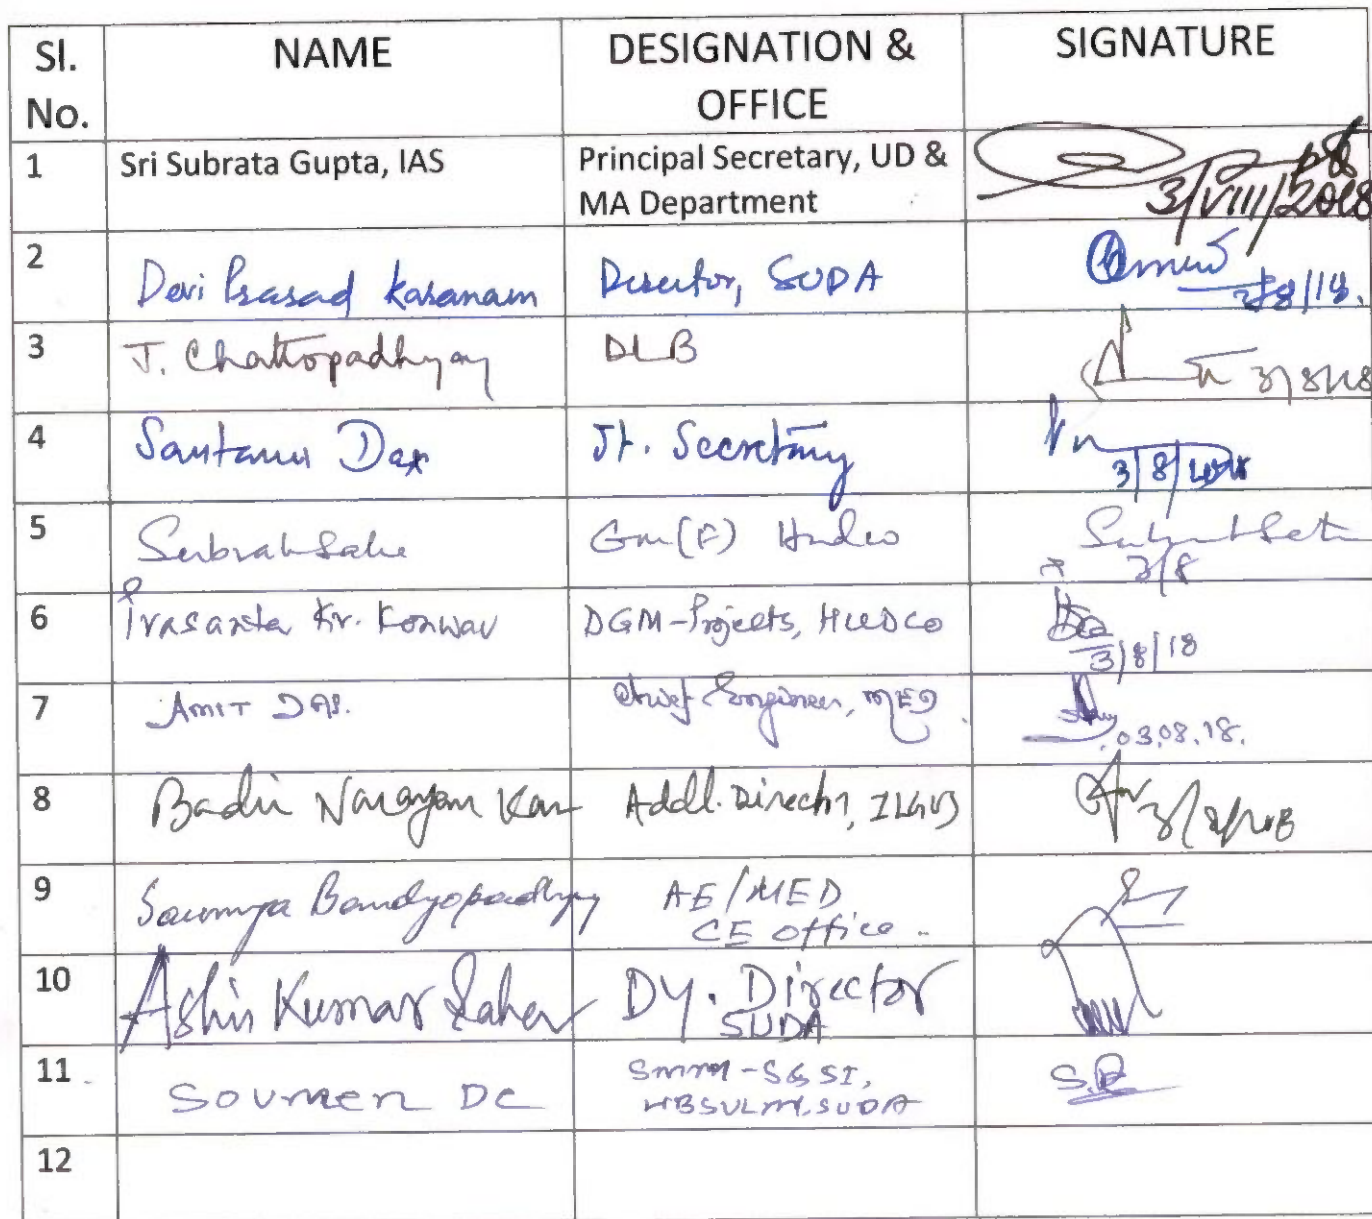 Sl. No. NAME DESIGNATION & OFFICE SIGNATURE
1 Sri Subrata Gupta, IAS Principal Secretary, UD & MA Department 3/VIII/2018
2 Devi Prasad Karanam Director, SUDA 3/8/18.
3 J. Chattopadhyay DLB 3/8/18
4 Santanu Das Jt. Secretary 3/8/2018
5 Subrat GM(F) Hudco 3/8
6 Prasanta Kr. Konwar DGM-Projects, HUDCO 3/8/18
7 AMIT DAS. Chief Engineer, MED 03.08.18.
8 Badri Narayan Kar Addl. Director, ILGUS 3/8/18
9 Soumya Bandyopadhyay AE/MED CE office
10 Kumar DY. Director SUDA
11 SOUMEN DE SMMM-S& SI, WBSULM, SUDA
12